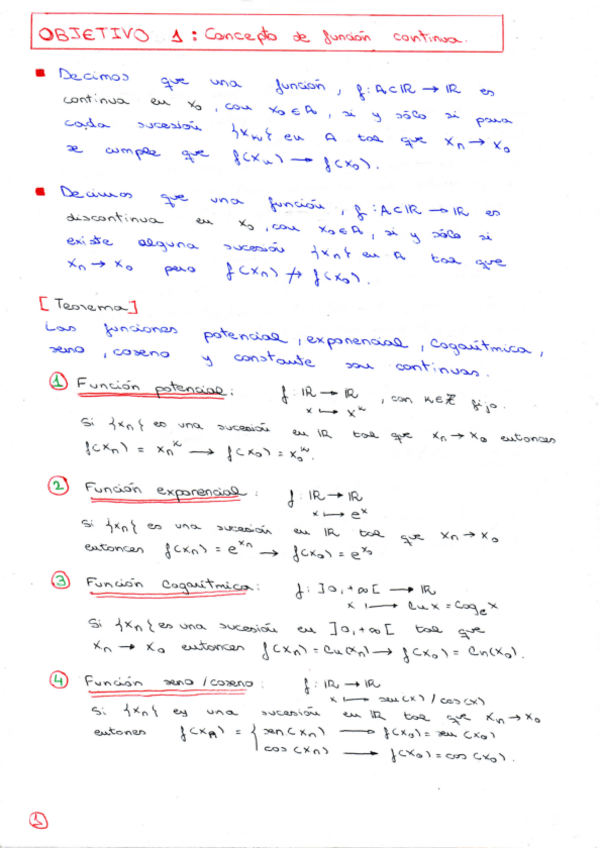 OBJETIVO 1: Concepto de función continua.
Decimos que una función, f: A⊂ℝ → ℝ es
continua en x₀, con x₀ ∈ A, si y sólo si para
cada sucesión {xₙ} en A tal que xₙ → x₀
se cumple que f(xₙ) → f(x₀).
Decimos que una función, f: A⊂ℝ → ℝ es
discontinua en x₀, con x₀ ∈ A, si y sólo si
existe alguna sucesión {xₙ} en A tal que
xₙ → x₀ pero f(xₙ) ↛ f(x₀).
[Teorema]
Las funciones potencial, exponencial, logarítmica,
seno, coseno y constante son continuas.
① Función potencial: f: ℝ → ℝ, con k∈ℤ fijo.
x ↦ xᵏ
Si {xₙ} es una sucesión en ℝ tal que xₙ → x₀ entonces
f(xₙ) = xₙᵏ → f(x₀) = x₀ᵏ.
② Función exponencial: f: ℝ → ℝ
x ↦ eˣ
Si {xₙ} es una sucesión en ℝ tal que xₙ → x₀
entonces f(xₙ) = e^xₙ → f(x₀) = e^x₀
③ Función logarítmica: f: ]0, +∞[ → ℝ
x ↦ ln x = logₑ x
Si {xₙ} es una sucesión en ]0, +∞[ tal que
xₙ → x₀ entonces f(xₙ) = ln(xₙ) → f(x₀) = ln(x₀).
④ Función seno/coseno: f: ℝ → ℝ
x ↦ sen(x) / cos(x)
Si {xₙ} es una sucesión en ℝ tal que xₙ → x₀
entones f(xₙ) = { sen(xₙ) → f(x₀) = sen(x₀)
cos(xₙ) → f(x₀) = cos(x₀).